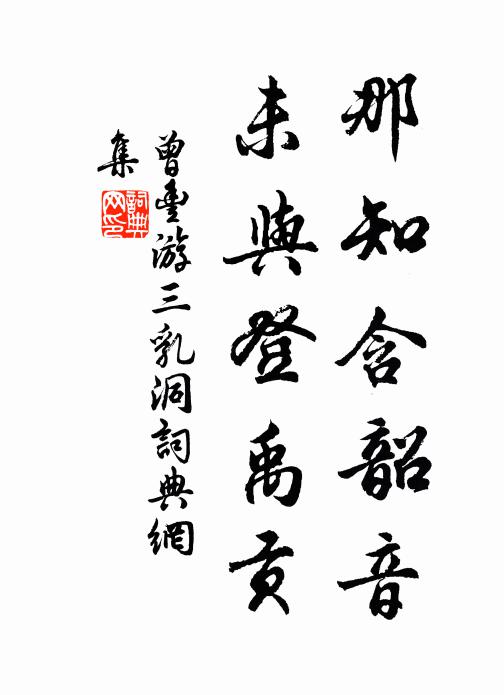 那知含韶音
未與登禹貢
曾豐游三乳洞詞典網
集
詞典
网印